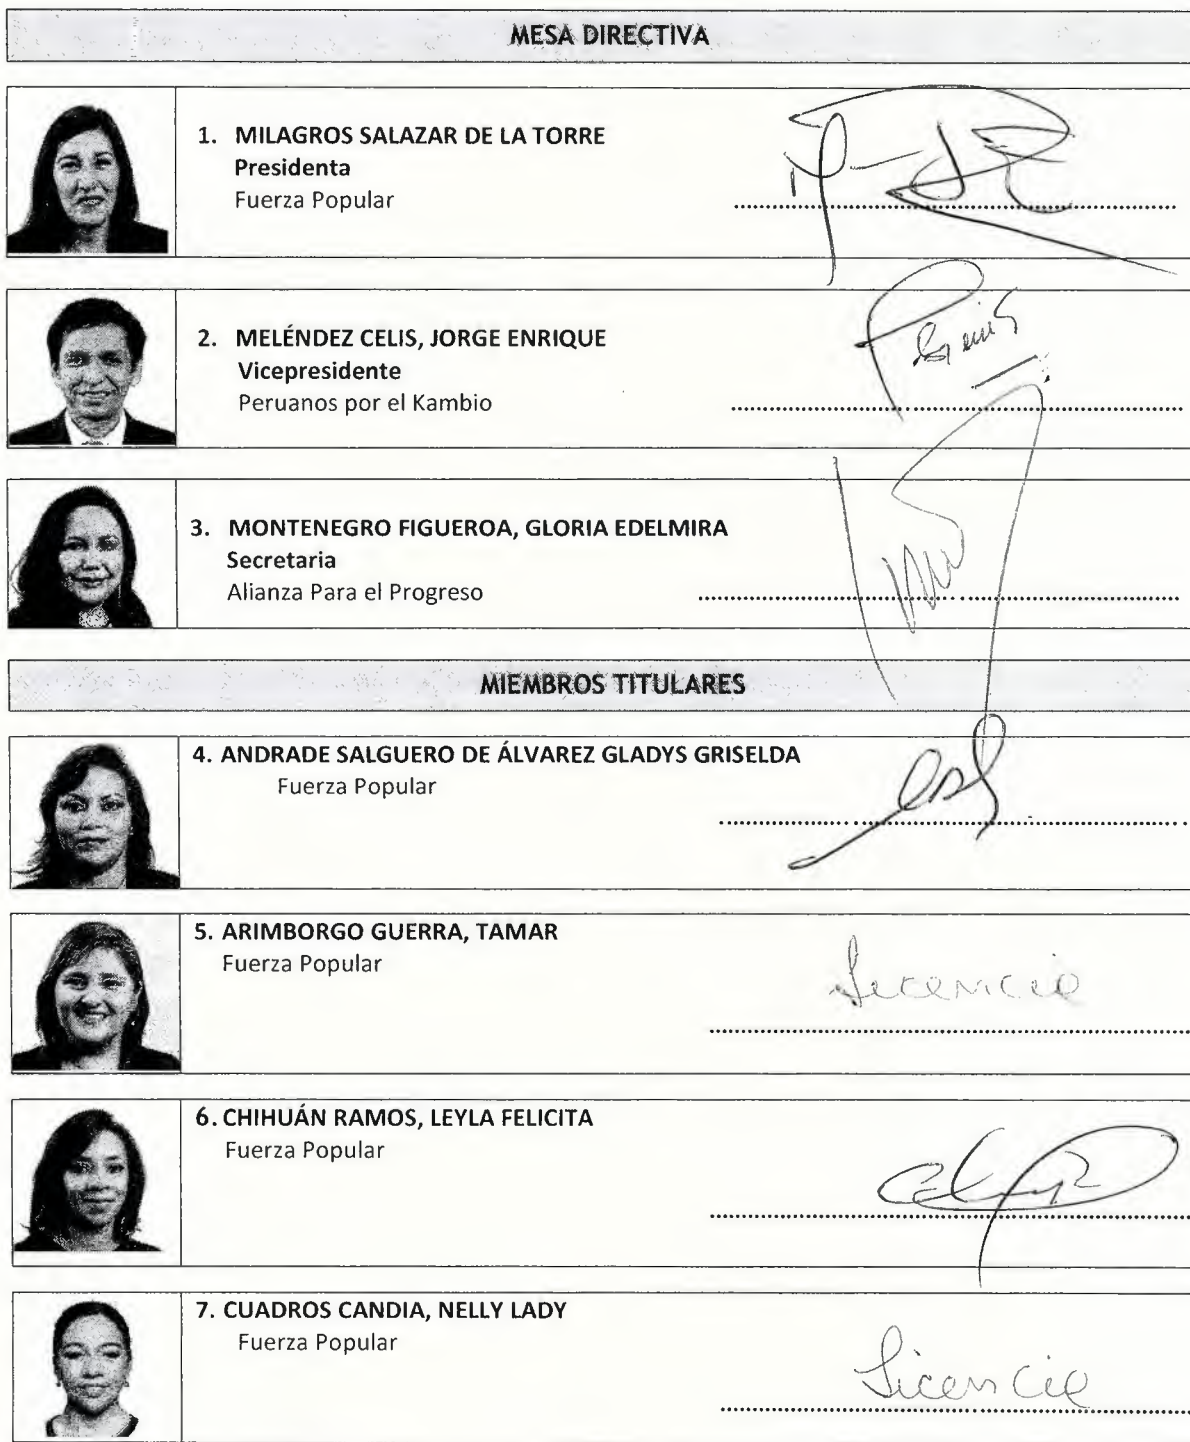 MESA DIRECTIVA
1. MILAGROS SALAZAR DE LA TORRE
Presidenta
Fuerza Popular
2. MELÉNDEZ CELIS, JORGE ENRIQUE
Vicepresidente
Peruanos por el Kambio
3. MONTENEGRO FIGUEROA, GLORIA EDELMIRA
Secretaria
Alianza Para el Progreso
MIEMBROS TITULARES
4. ANDRADE SALGUERO DE ÁLVAREZ GLADYS GRISELDA
Fuerza Popular
5. ARIMBORGO GUERRA, TAMAR
Fuerza Popular
Licencia
6. CHIHUÁN RAMOS, LEYLA FELICITA
Fuerza Popular
7. CUADROS CANDIA, NELLY LADY
Fuerza Popular
Licencia